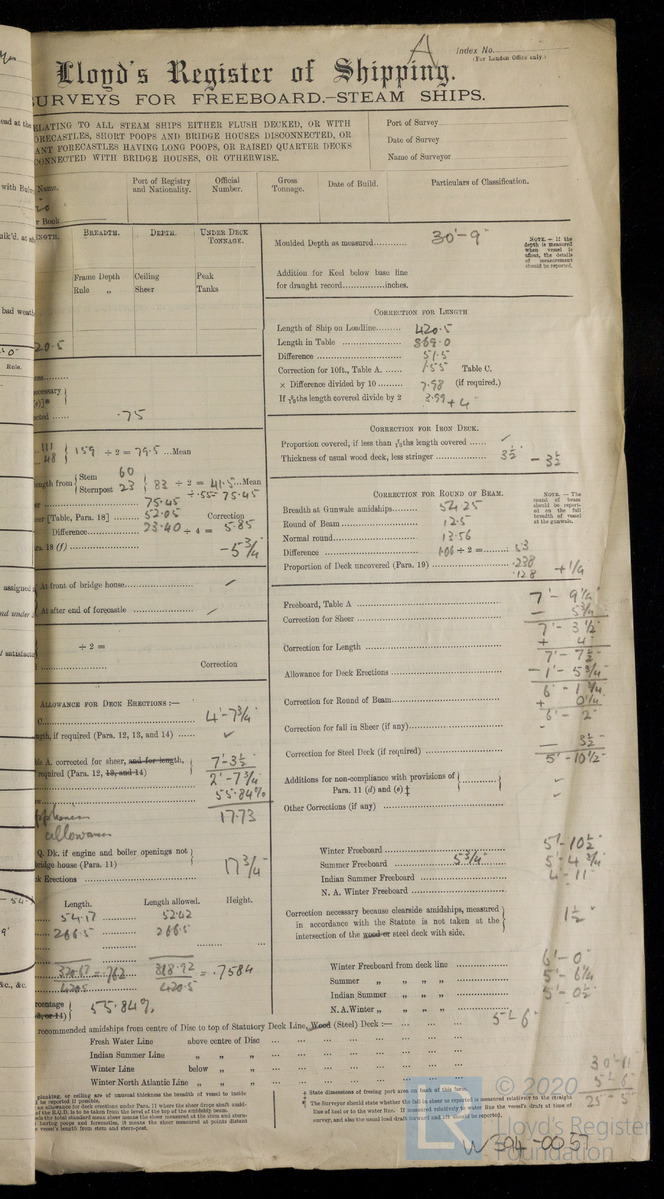 A
Index No.
(For London Office only.)
Lloyd's Register of Shipping.
SURVEYS FOR FREEBOARD.—STEAM SHIPS.
RELATING TO ALL STEAM SHIPS EITHER FLUSH DECKED, OR WITH
FORECASTLES, SHORT POOPS AND BRIDGE HOUSES DISCONNECTED, OR
FORECASTLES HAVING LONG POOPS, OR RAISED QUARTER DECKS
CONNECTED WITH BRIDGE HOUSES, OR OTHERWISE.
Port of Survey
Date of Survey
Name of Surveyor
Name.
Port of Registry and Nationality.
Official Number.
Gross Tonnage.
Date of Build.
Particulars of Classification.
Book
BREADTH.
DEPTH.
UNDER DECK TONNAGE.
Frame Depth Ceiling Peak
Rule „ Sheer Tanks
20.5
.75
Moulded Depth as measured 30'-9"
NOTE.—If the depth is measured when vessel is afloat, the details of measurement should be reported.
Addition for Keel below base line
for draught record inches.
CORRECTION FOR LENGTH
Length of Ship on Loadline 420.5
Length in Table 369.0
Difference 51.5
Correction for 10ft., Table A. 1.55 Table C.
× Difference divided by 10 7.98 (if required.)
If ths length covered divide by 2 3.99 +4"
CORRECTION FOR IRON DECK.
Proportion covered, if less than ths length covered ✓
Thickness of usual wood deck, less stringer 3½ - 3½
111
48 } 159 ÷ 2 = 79.5 Mean
length from { Stem 60
Sternpost 23 } 83 ÷ 2 = 41.5 Mean
75.45 ÷ .55 = 75.45
[Table, Para. 18] 52.05 Correction
Difference 23.40 ÷ 4 = 5.85
18 (f) -5¾
CORRECTION FOR ROUND OF BEAM.
NOTE.—The round of beam should be reported on the full breadth of vessel at the gunwale.
Breadth at Gunwale amidships 54.25
Round of Beam 12.5
Normal round 13.56
Difference 1.06 ÷ 2 = .53
Proportion of Deck uncovered (Para. 19) .238
.128 +¼
At front of bridge house ✓
At after end of forecastle ✓
÷ 2 =
Correction
Freeboard, Table A 7'-9¼
Correction for Sheer - 5¾
7'-3½
Correction for Length + 4"
7'-7½
Allowance for Deck Erections -1'-5¾
6'-1¾
Correction for Round of Beam + 0¼
6'-2"
Correction for fall in Sheer (if any) -
Correction for Steel Deck (if required) - 3½
5'-10½
Additions for non-compliance with provisions of
Para. 11 (d) and (e) ‡ ✓
Other Corrections (if any) ✓
ALLOWANCE FOR DECK ERECTIONS :—
4'-7¾
length, if required (Para. 12, 13, and 14) ✓
A. corrected for sheer, and for length,
required (Para. 12, 13, and 14) 7'-3½
2'-7¾
55.84%
17.73
allowance
Q. Dk. if engine and boiler openings not
bridge house (Para. 11)
Erections 17¾"
Length. Length allowed. Height.
54.17 52.42
266.5 266.5
320.67 = .762 318.92 = .7584
420.5 420.5
55.84%
Winter Freeboard 5'-10½
Summer Freeboard 5¾" 5'-4¾
Indian Summer Freeboard 4-11
N. A. Winter Freeboard
Correction necessary because clearside amidships, measured
in accordance with the Statute is not taken at the
intersection of the wood or steel deck with side. 1½
Winter Freeboard from deck line 6'-0"
Summer „ „ „ „ 5'-6¼
Indian Summer „ „ „ 5'-0½
N.A. Winter „ „ „ „
recommended amidships from centre of Disc to top of Statutory Deck Line, Wood (Steel) Deck :— 5'-6"
Fresh Water Line above centre of Disc
Indian Summer Line „ „ „
Winter Line below „ „
Winter North Atlantic Line „ „ „
30'-11
5'-6
25'-5
‡ State dimensions of freeing port area on back of this form.
The Surveyor should state whether the fall in sheer so reported is measured relatively to the straight
line of keel or to the water line. If measured relatively to water line the vessel's draught at time of
survey, and also the usual load draft forward and aft should be reported.
W394-0057
© 2020
LR Lloyd's Register
Foundation